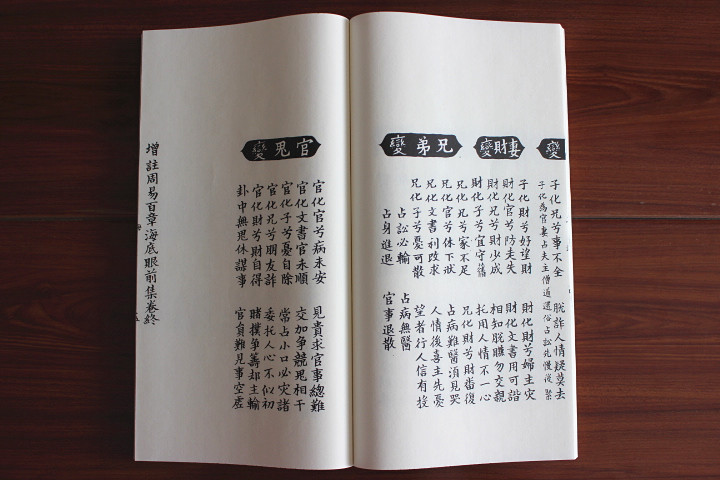 變
子化兄兮事不全 脫詐人情疑莫去
子化為官妻占夫主僧道還俗占訟先慢後緊
妻財變
子化財兮好望財 財化財兮婦主灾
財化官兮防走失 財化文書用可諧
財化兄兮財少成 相知脫賺勿交親
財化子兮宜守舊 托用人情不一心
兄弟變
兄化兄兮家不足 兄化財兮財番復
兄化官兮休下狀 占病難醫須見哭
兄化文書利改求 人情後喜主先憂
兄化子兮憂可散 望者行人信有投
占訟必輸 占病無醫
占身進退 官事退散
官鬼變
官化官兮病未安 見貴求官事總難
官化文書官未順 交加爭競鬼相干
官化子兮憂自除 常占小口必灾諸
官化兄兮朋友詐 委托人心不似初
官化財兮財自得 賭撲爭籌却主輸
卦中無鬼休謀事 官員難見事空虛
增註周易百章海底眼前集卷終